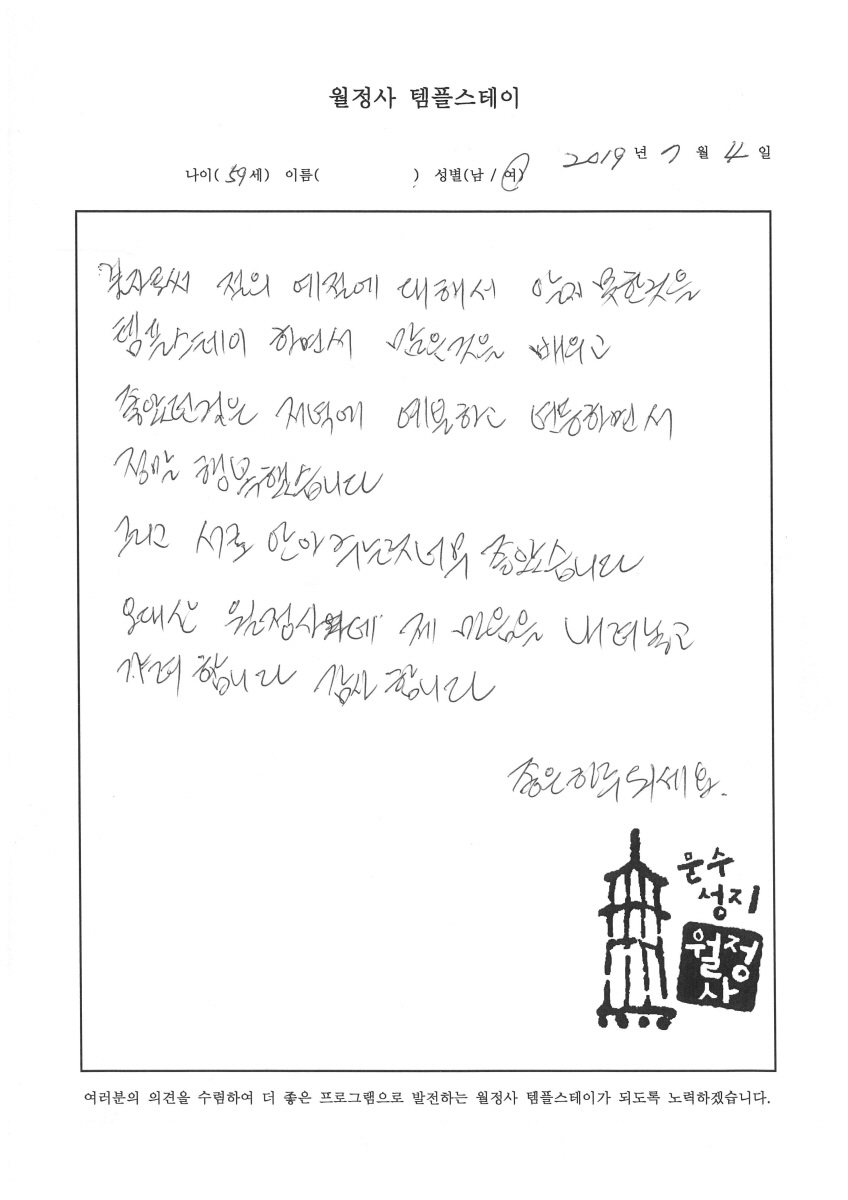 월정사 템플스테이
2019 년 7 월 4 일
나이( 59 세) 이름( ) 성별(남 / 여)
절의 예절에 대해서 알지 못한것을
템플스테이 하면서 많은것을 배우고
좋았던점은 저녁에 예불하고 하면서
정말 행복했습니다
그리고 서로 안아 너무 좋았습니다
오대산 월정사에 제 마음을 내려놓고
가려 합니다 감사 합니다
좋은하루되세요.
문수
성지
월정
사
여러분의 의견을 수렴하여 더 좋은 프로그램으로 발전하는 월정사 템플스테이가 되도록 노력하겠습니다.